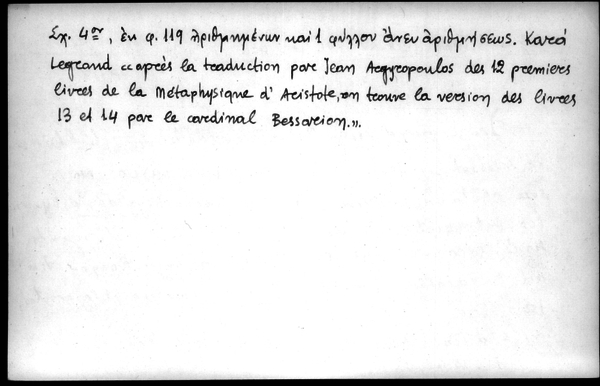 Σχ. 4ον, ἐκ φ. 119 ἀριθμημένων καί 1 φύλλου ἄνευ ἀριθμήσεως. Κατά
Legrand «après la traduction par Jean Argyropoulos des 12 premiers
livres de la Métaphysique d'Aristote, on trouve la version des livres
13 et 14 par le cardinal Bessarion.».